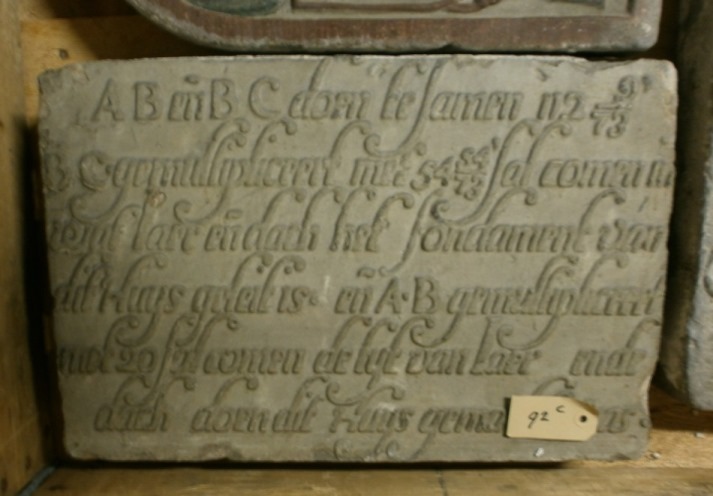 A B eñ B C doen te samen 112 9/73
B C gemulipliceert met 54 34/73 sal comen in
laer eñ dach het fondament van
dit Huys geleit is · eñ A·B gemultipliceert
met 20 sal comen de tyt van Iaer ende
dach doen dit Huys gema
92 c